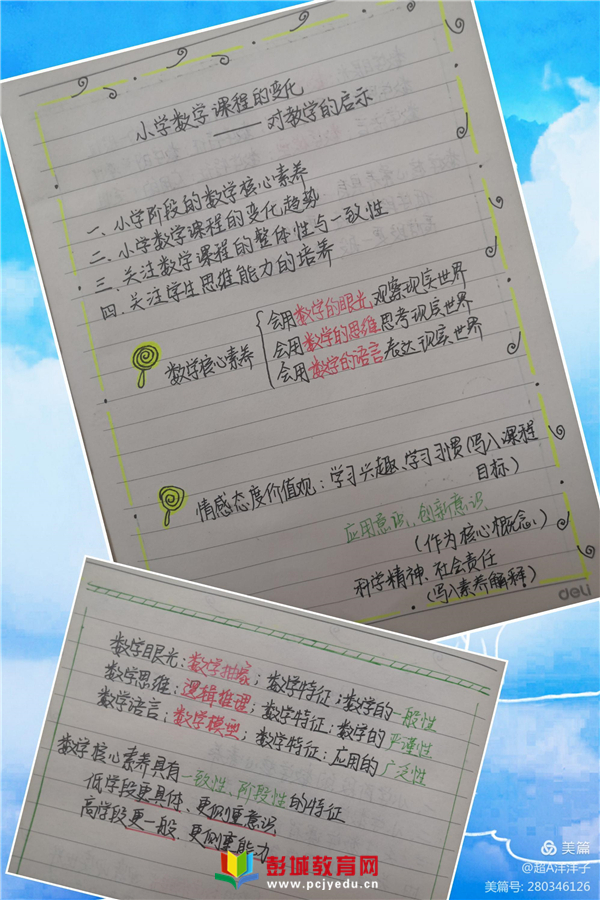 小学数学课程的变化
——对教学的启示
一、小学阶段的数学核心素养
二、小学数学课程的变化趋势
三、关注数学课程的整体性与一致性
四、关注学生思维能力的培养
数学核心素养
会用数学的眼光观察现实世界
会用数学的思维思考现实世界
会用数学的语言表达现实世界
情感态度价值观：学习兴趣、学习习惯(写入课程
目标)
应用意识、创新意识
(作为核心概念)
科学精神、社会责任
(写入素养解释)
deli
数学眼光：数学抽象；数学特征：数学的一般性
数学思维：逻辑推理；数学特征：数学的严谨性
数学语言：数学模型；数学特征：应用的广泛性
数学核心素养具有一致性、阶段性的特征
低学段更具体、更侧重意识
高学段更一般、更侧重能力
彭城教育网
www.pcjyedu.cn
美篇
@超A洋洋子
美篇号: 280346126